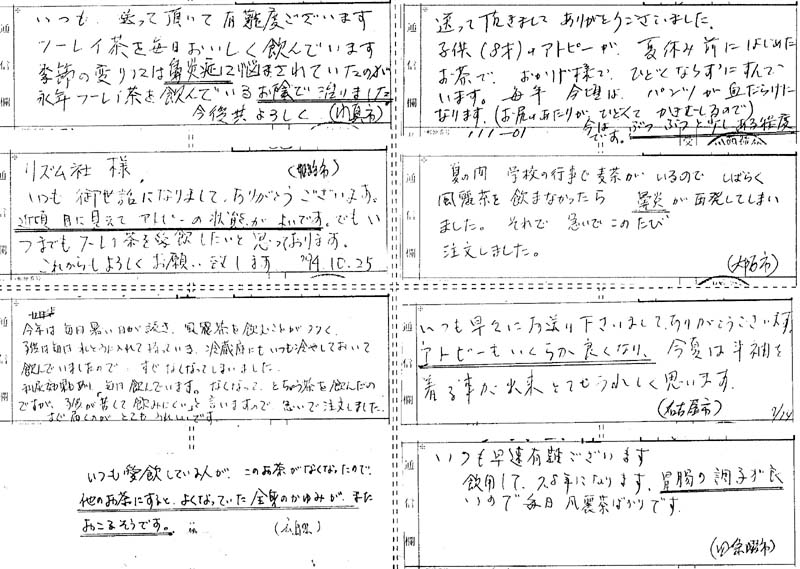 通信欄
いつも、送って頂いて有難度ございます
ツーレイ茶を毎日おいしく飲んでいます
季節の変りには鼻炎症に悩まされていたのが
永年フーレイ茶を飲んでいるお陰で治りました
今後共よろしく
通信欄
送って頂きまして ありがとうございました。
子供(8才)のアトピーが、夏休み前にはじめた
お茶で、おかげ様で、ひどくならずにすんで
います。毎年 今頃は、パンツが血だらけに
なります。(お尻のあたりがひどくてかきむしるので)
今は ぶつぶつと少しある程度
です。
通信欄
リズム社 様
いつも御世話になりまして、ありがとうございます。
近頃 目に見えて アトピーの状態がよいです。でもい
つまでもフーレイ茶を愛飲したいと思っております。
これからもよろしくお願い致します '94.10.25
通信欄
夏の間 学校の行事で麦茶がいるので しばらく
風麗茶を飲まなかったら 鼻炎が再発してしまい
ました。それで 急いでこのたび
注文しました。
(大和市)
通信欄
今年は毎日暑い日が続き、風麗茶を飲むことが
冷蔵庫にもいつも冷やしておいて
飲んでいましたので すぐなくなってしまいました。
毎日飲んでいます。なくなって、とちゅう茶を飲んだの
ですが、「苦くて飲みにくい」と言いますので 急いで注文しました。
すぐ届くのが とてもうれしいです。
通信欄
いつも早々にお送り下さいまして、ありがとうございます
アトピーもいくらか良くなり、今夏は半袖を
着る事が出来とてもうれしく思います。
(名古屋市)
いつも愛飲している人が、このお茶がなくなったので、
他のお茶にすると、よくなっていた全身のかゆみが、また
おこるそうです。
通信欄
いつも早速有難ございます
飲用して、7.8年になります。胃腸の調子が良
いので毎日 風麗茶ばかりです。
(四条畷市)